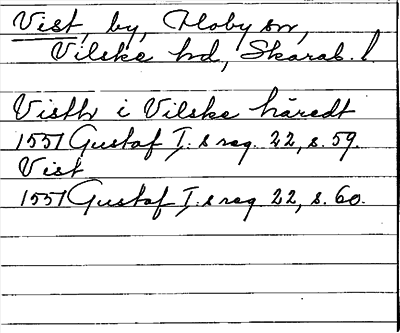 Vist, by, Floby sn,
Vilske hd, Skarab. l
Visth i Vilske häredt
1551 Gustaf I:s reg. 22, s. 59.
Vist
1551 Gustaf I:s reg 22, s. 60.